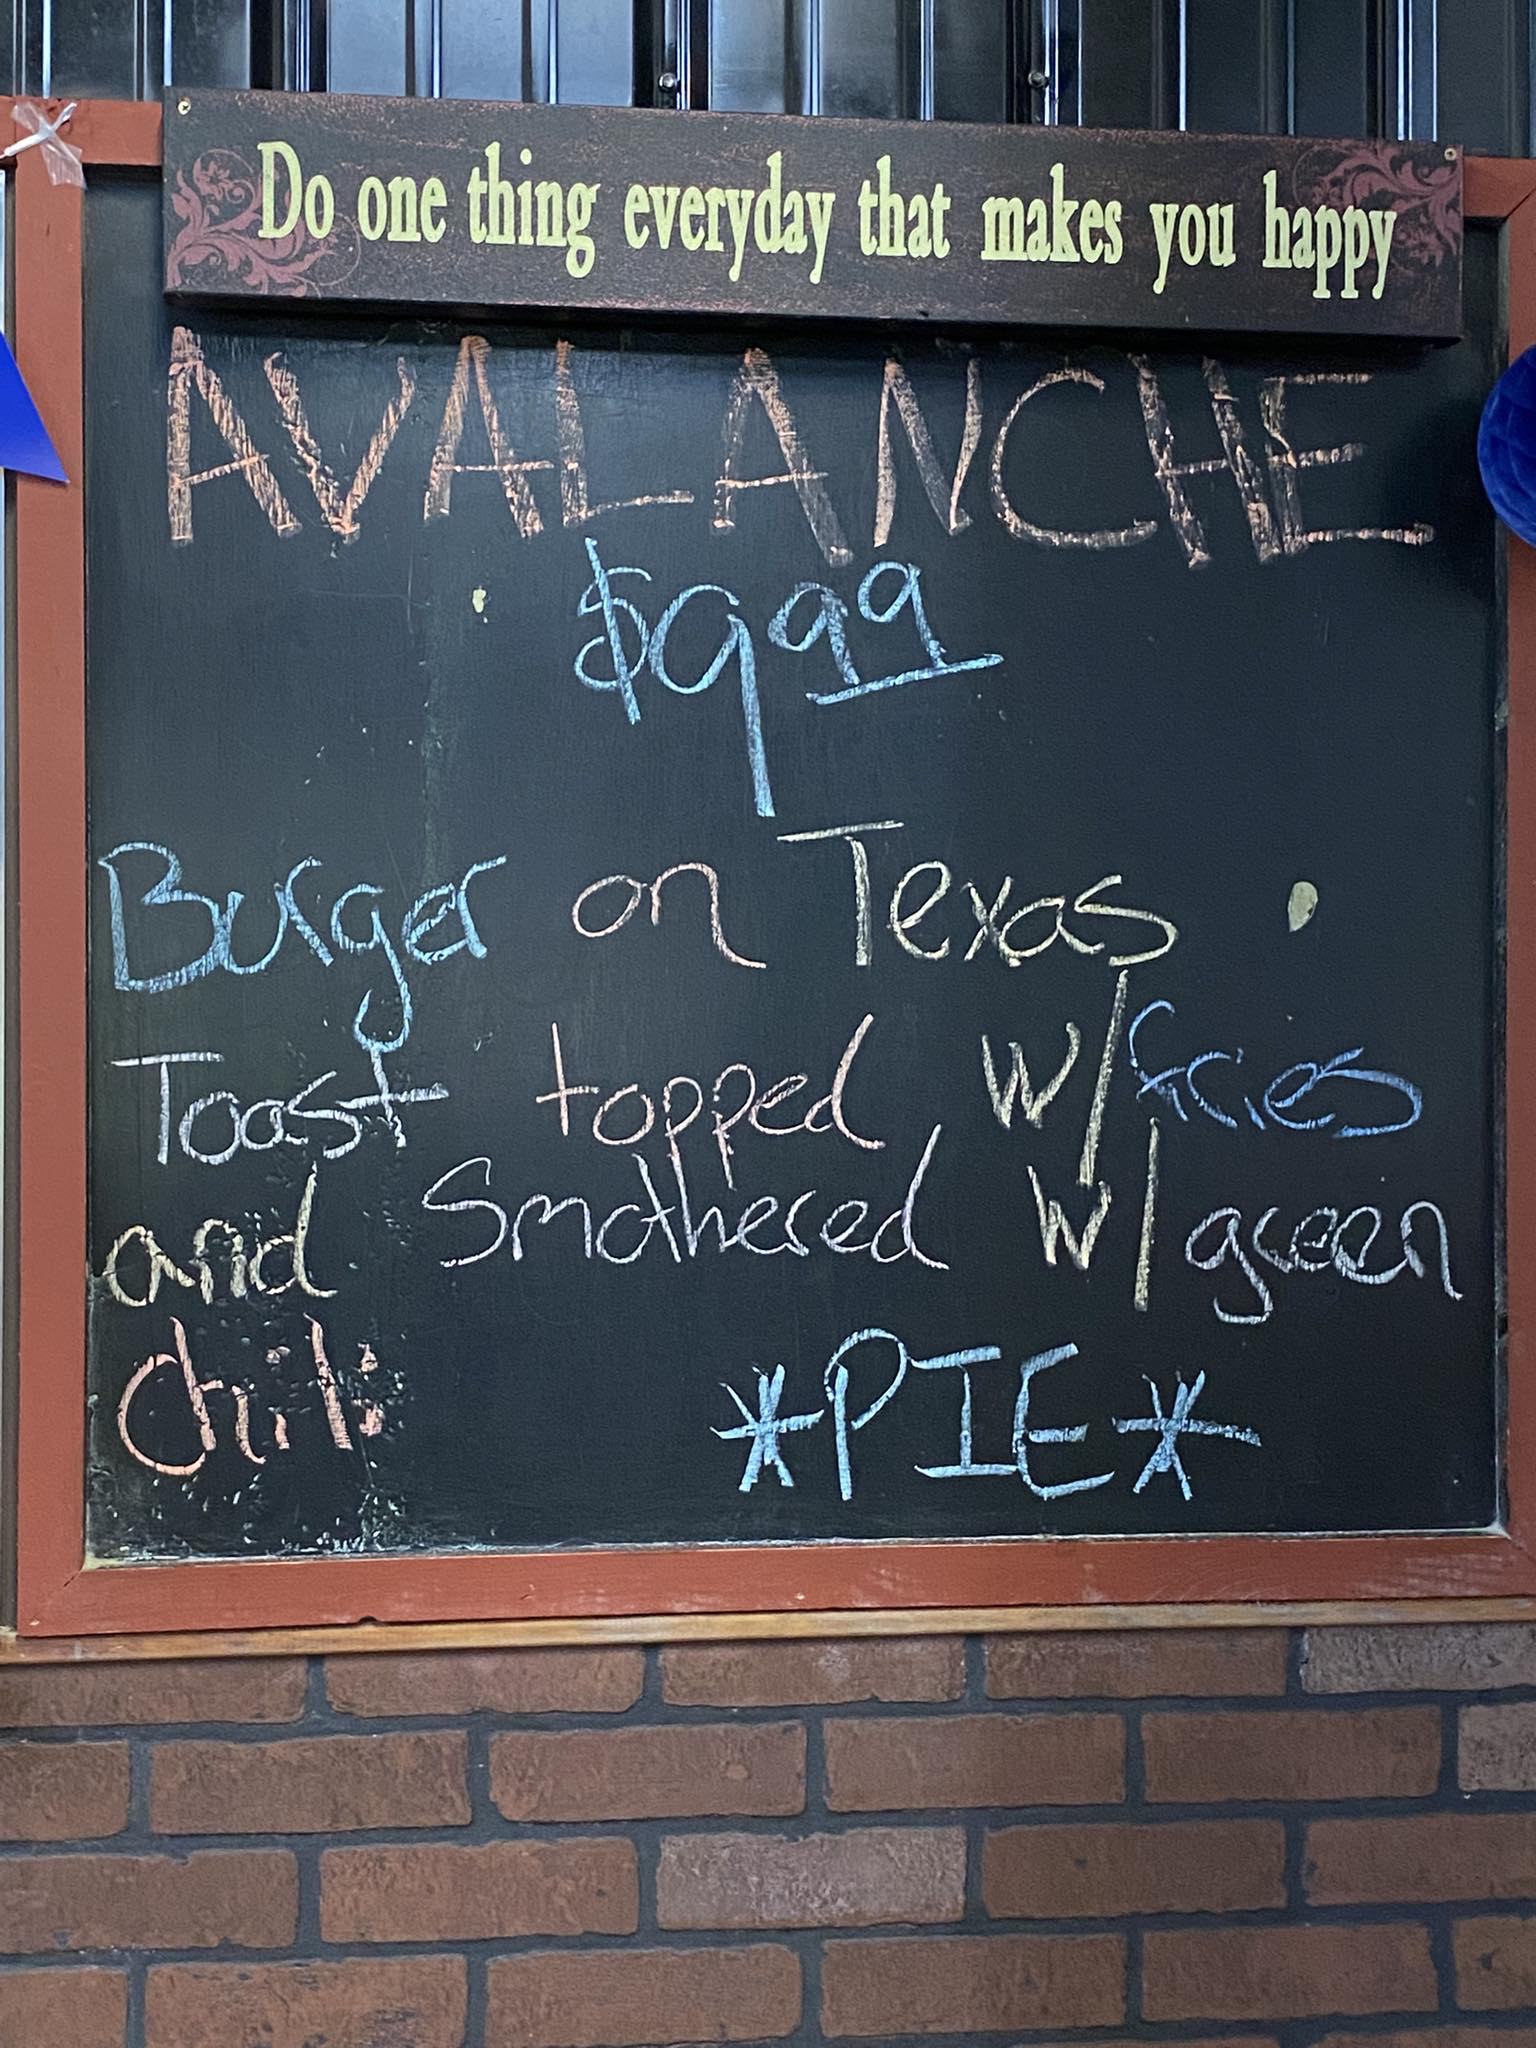 Do one thing everyday that makes you happy
AVALANCHE
$9.99
Burger on Texas
Toast topped w/fries
and Smothered w/green
Chili
*PIE*